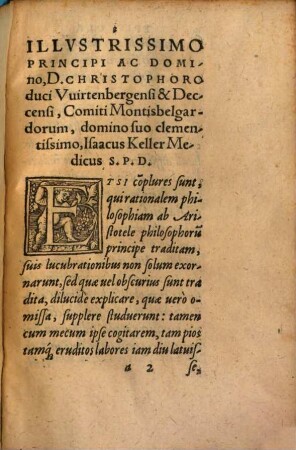 ILLVSTRISSIMO
PRINCIPI AC DOMI
no, D. CHRISTOPHORO
duci Vuirtenbergensi & Dec
censi, Comiti Montisbelgar
dorum, domino suo clemen
tissimo, Isaacus Keller Me
dicus S. P. D.
ETSI cōplures sunt,
qui rationalem phi
losophiam ab Ari
stotele philosophorū
principe traditam,
suis lucubrationibus non solum exor
narunt, sed quæ vel obscurius sunt tra
dita, dilucide explicare, quæ vero o
missa, supplere studuerunt: tamen
cum mecum ipse cogitarem, tam pios
tamq́; eruditos labores iam diu latuis
a 2 se,